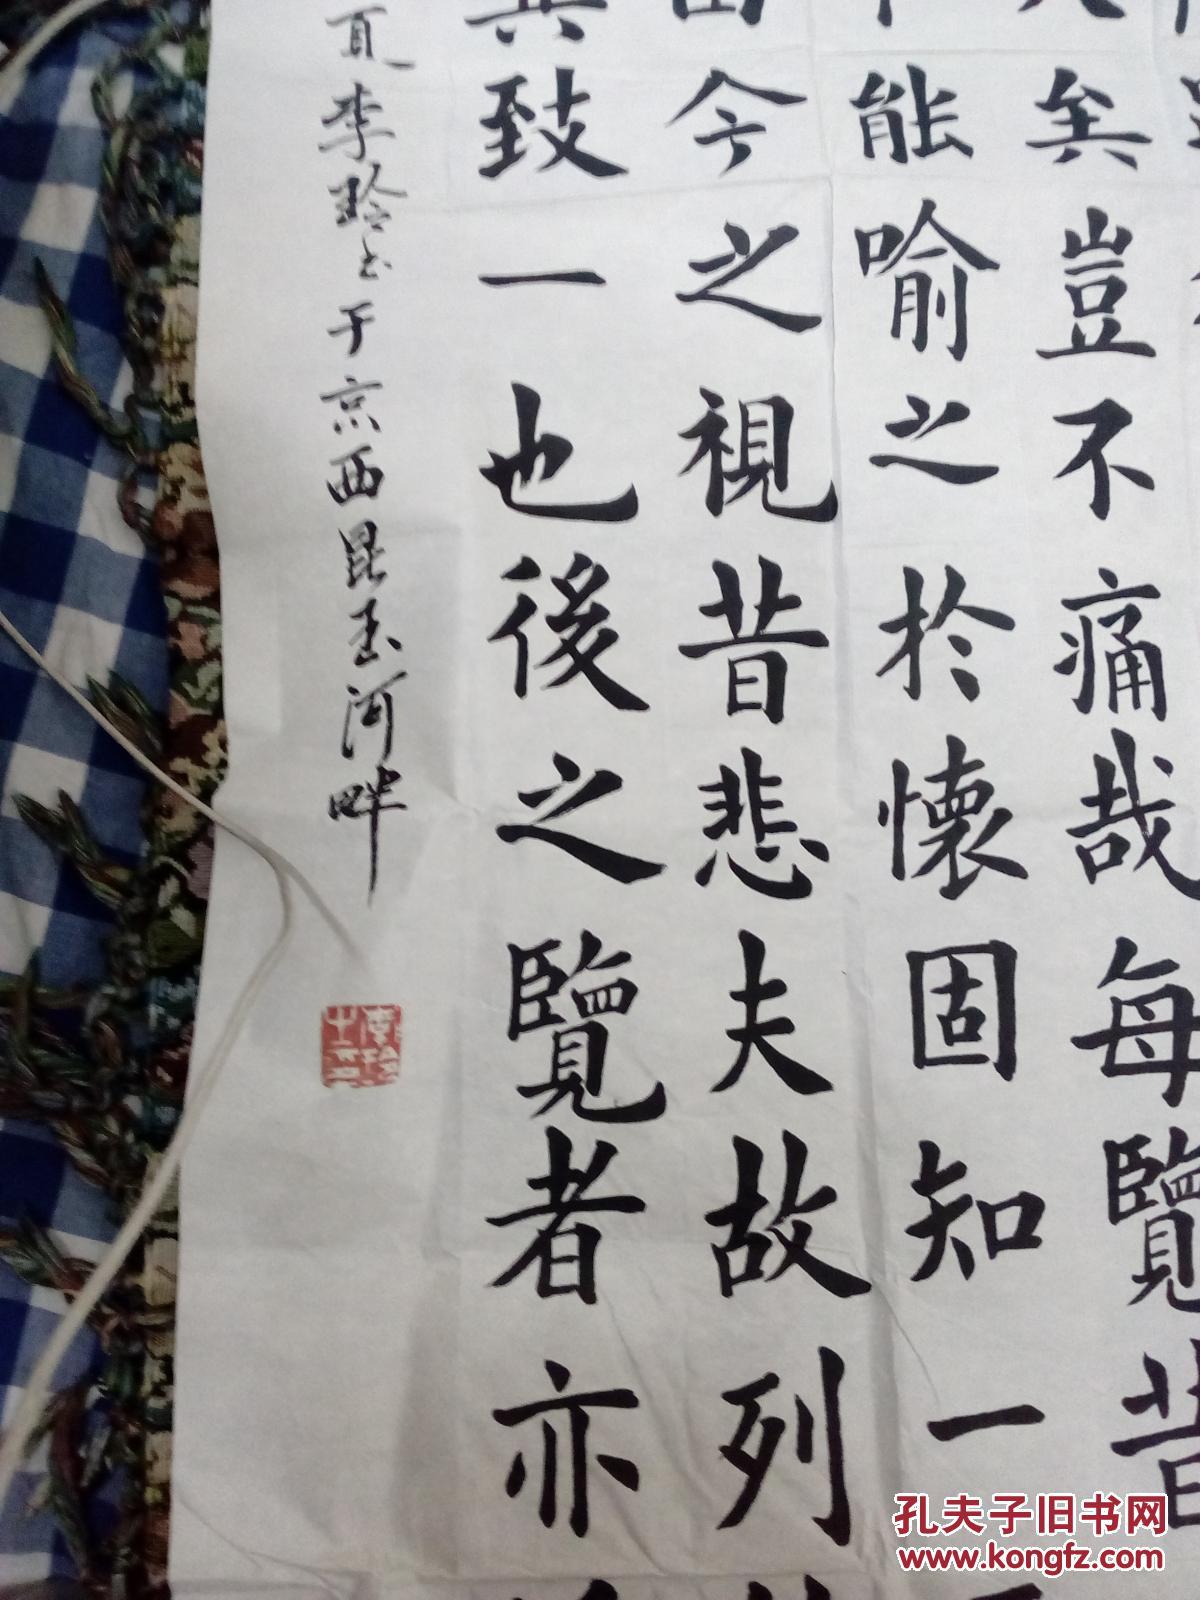 矣豈不痛哉每覽昔
能喻之於懷固知一
今之視昔悲夫故列
致一也後之覽者亦
夏李玲书于京西昆玉河畔
孔夫子旧书网
www.kongfz.com